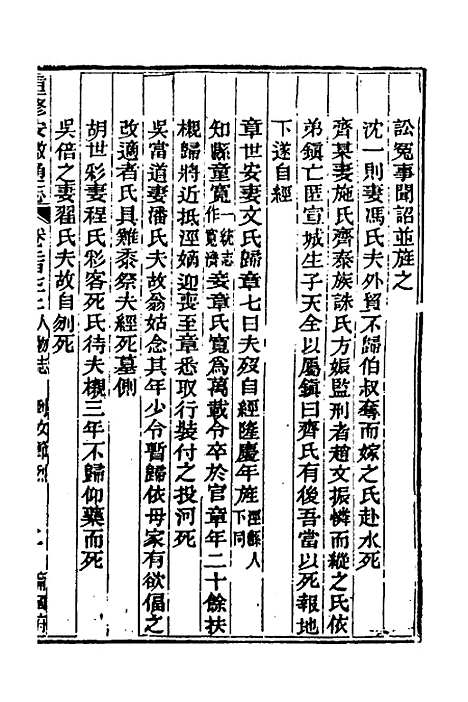 訟冤事聞詔並旌之
沈一則妻馮氏夫外貿不歸伯叔奪而嫁之氏赴水死
齊某妻施氏齊泰族誅氏方娠監刑者趙文振憐而縱之氏依
弟鎮亡匿宣城生子天全以屬鎮曰齊氏有後吾當以死報地
下遂自經
章世安妻文氏歸章七日夫歿自經隆慶年旌涇縣人下同
知縣童寬一統志作寬濟妾章氏寬為萬載令卒於官章年二十餘扶
櫬歸將近抵涇嫡迎喪至章悉取行裝付之投河死
吳當道妻潘氏夫故翁姑念其年少令暫歸依母家有欲偪之
改適者氏具雞黍祭夫經死墓側
胡世彩妻程氏彩客死氏待夫櫬三年不歸仰藥而死
吳倍之妻翟氏夫故自刎死
重修安徽通志 卷二百七十七 人物志 列女節烈 甯國府